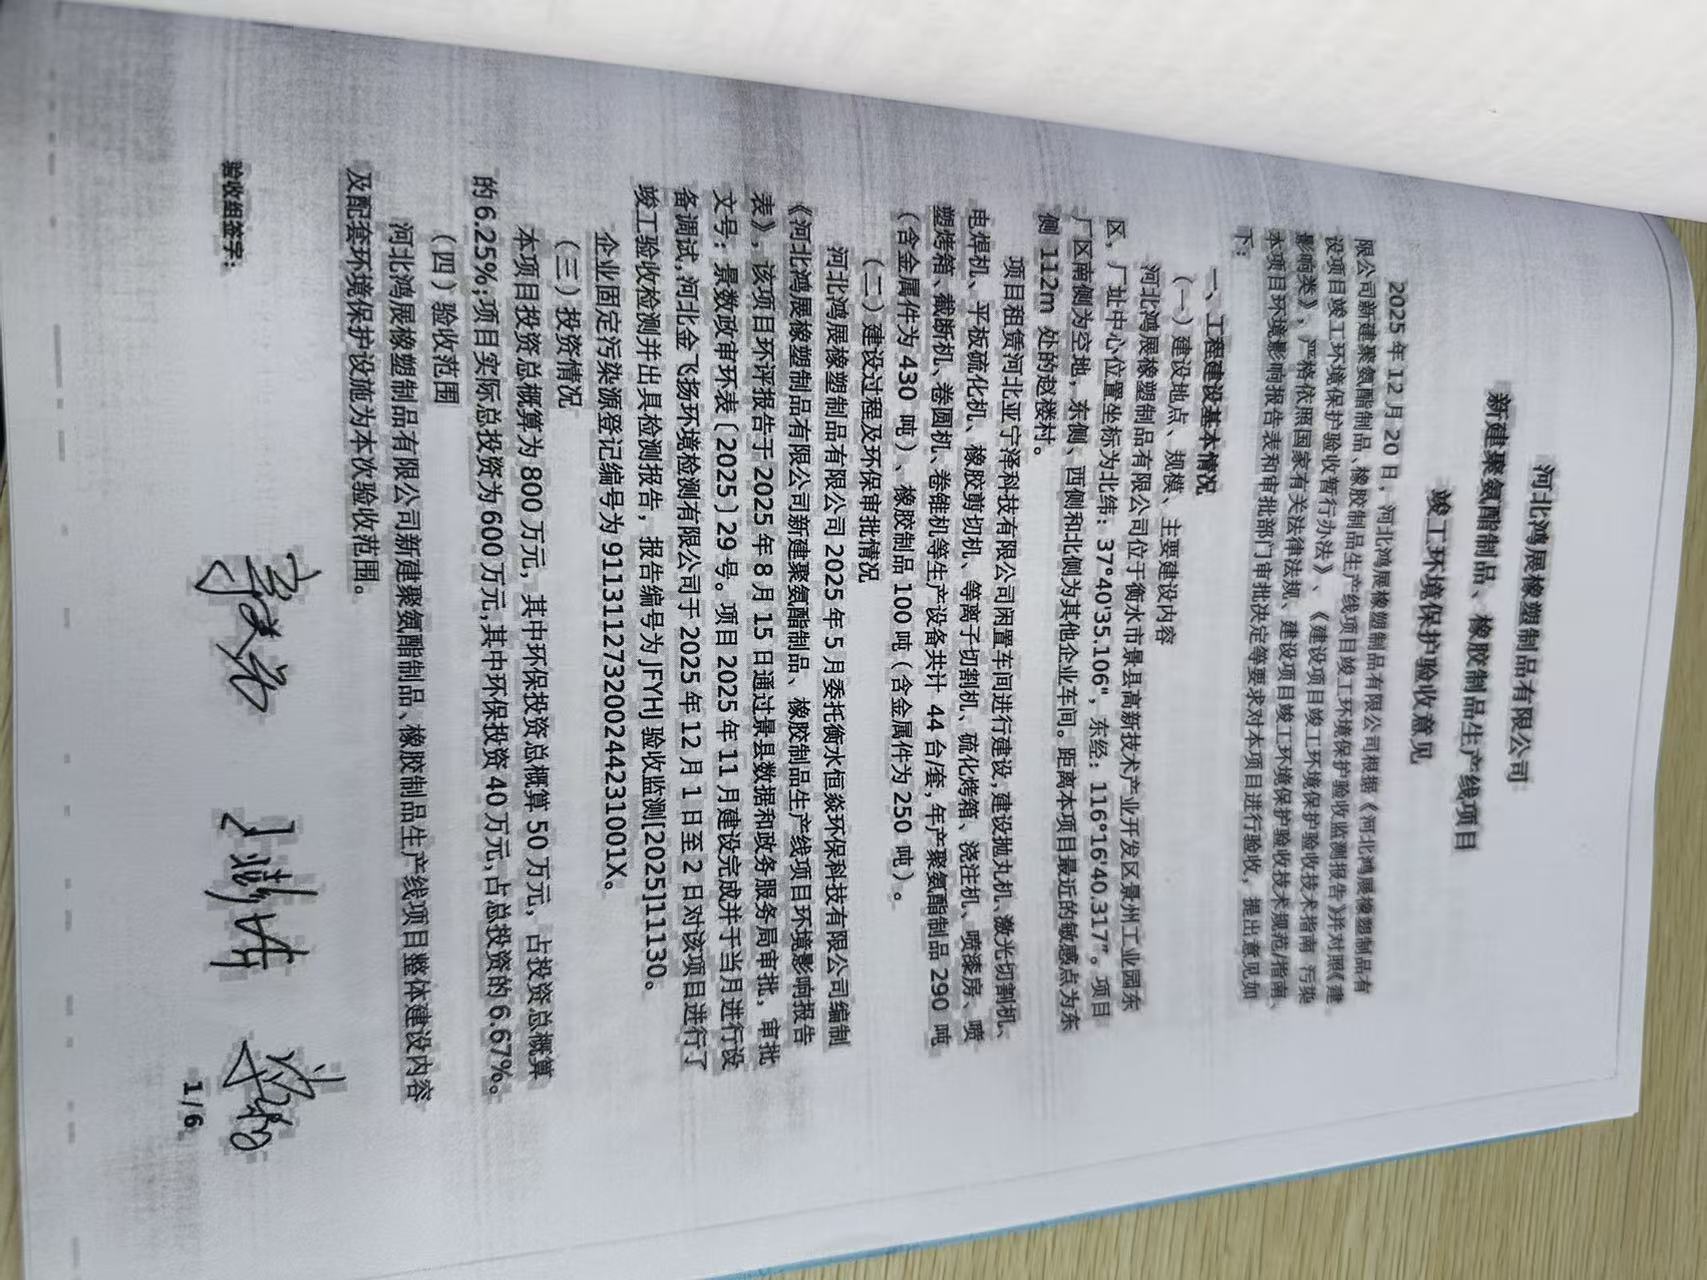 河北鸿展橡塑制品有限公司
新建聚氨酯制品、橡胶制品生产线项目
竣工环境保护验收意见
2025年12月20日，河北鸿展橡塑制品有限公司根据《河北鸿展橡塑制品有
限公司新建聚氨酯制品、橡胶制品生产线项目竣工环境保护验收监测报告》并对照《建
设项目竣工环境保护验收暂行办法》、《建设项目竣工环境保护验收技术指南 污染
影响类》，严格依照国家有关法律法规、建设项目竣工环境保护验收技术规范/指南、
本项目环境影响报告表和审批部门审批决定等要求对本项目进行验收，提出意见如
下：
一、工程建设基本情况
（一）建设地点、规模、主要建设内容
河北鸿展橡塑制品有限公司位于衡水市景县高新技术产业开发区景州工业园东
区，厂址中心位置坐标为北纬：37°40'35.106"，东经：116°16'40.317"。项目
厂区南侧为空地，东侧、西侧和北侧为其他企业车间。距离本项目最近的敏感点为东
侧 112m 处的赵楼村。
项目租赁河北亚宇泽科技有限公司闲置车间进行建设，建设抛丸机、激光切割机、
电焊机、平板硫化机、橡胶剪切机、等离子切割机、硫化烤箱、浇注机、喷漆房、喷
塑烤箱、截断机、卷圆机、卷锥机等生产设备共计 44 台/套，年产聚氨酯制品 290 吨
（含金属件为 430 吨）、橡胶制品 100 吨（含金属件为 250 吨）。
（二）建设过程及环保审批情况
河北鸿展橡塑制品有限公司 2025 年 5 月委托衡水恒焱环保科技有限公司编制
《河北鸿展橡塑制品有限公司新建聚氨酯制品、橡胶制品生产线项目环境影响报告
表》，该项目环评报告于 2025 年 8 月 15 日通过景县数据和政务服务局审批，审批
文号：景数政审环表〔2025〕29 号。项目 2025 年 11 月建设完成并于当月进行设
备调试，河北金飞扬环境检测有限公司于 2025 年 12 月 1 日至 2 日对该项目进行了
竣工验收检测并出具检测报告，报告编号为 JFYHJ 验收监测[2025]11130。
企业固定污染源登记编号为 91131127320024423­1001X。
（三）投资情况
本项目投资总概算为 800 万元，其中环保投资总概算 50 万元，占投资总概算
的 6.25%；项目实际总投资为 600 万元，其中环保投资 40 万元，占总投资的 6.67%。
（四）验收范围
河北鸿展橡塑制品有限公司新建聚氨酯制品、橡胶制品生产线项目整体建设内容
及配套环境保护设施为本次验收范围。
验收组签字：
1/6